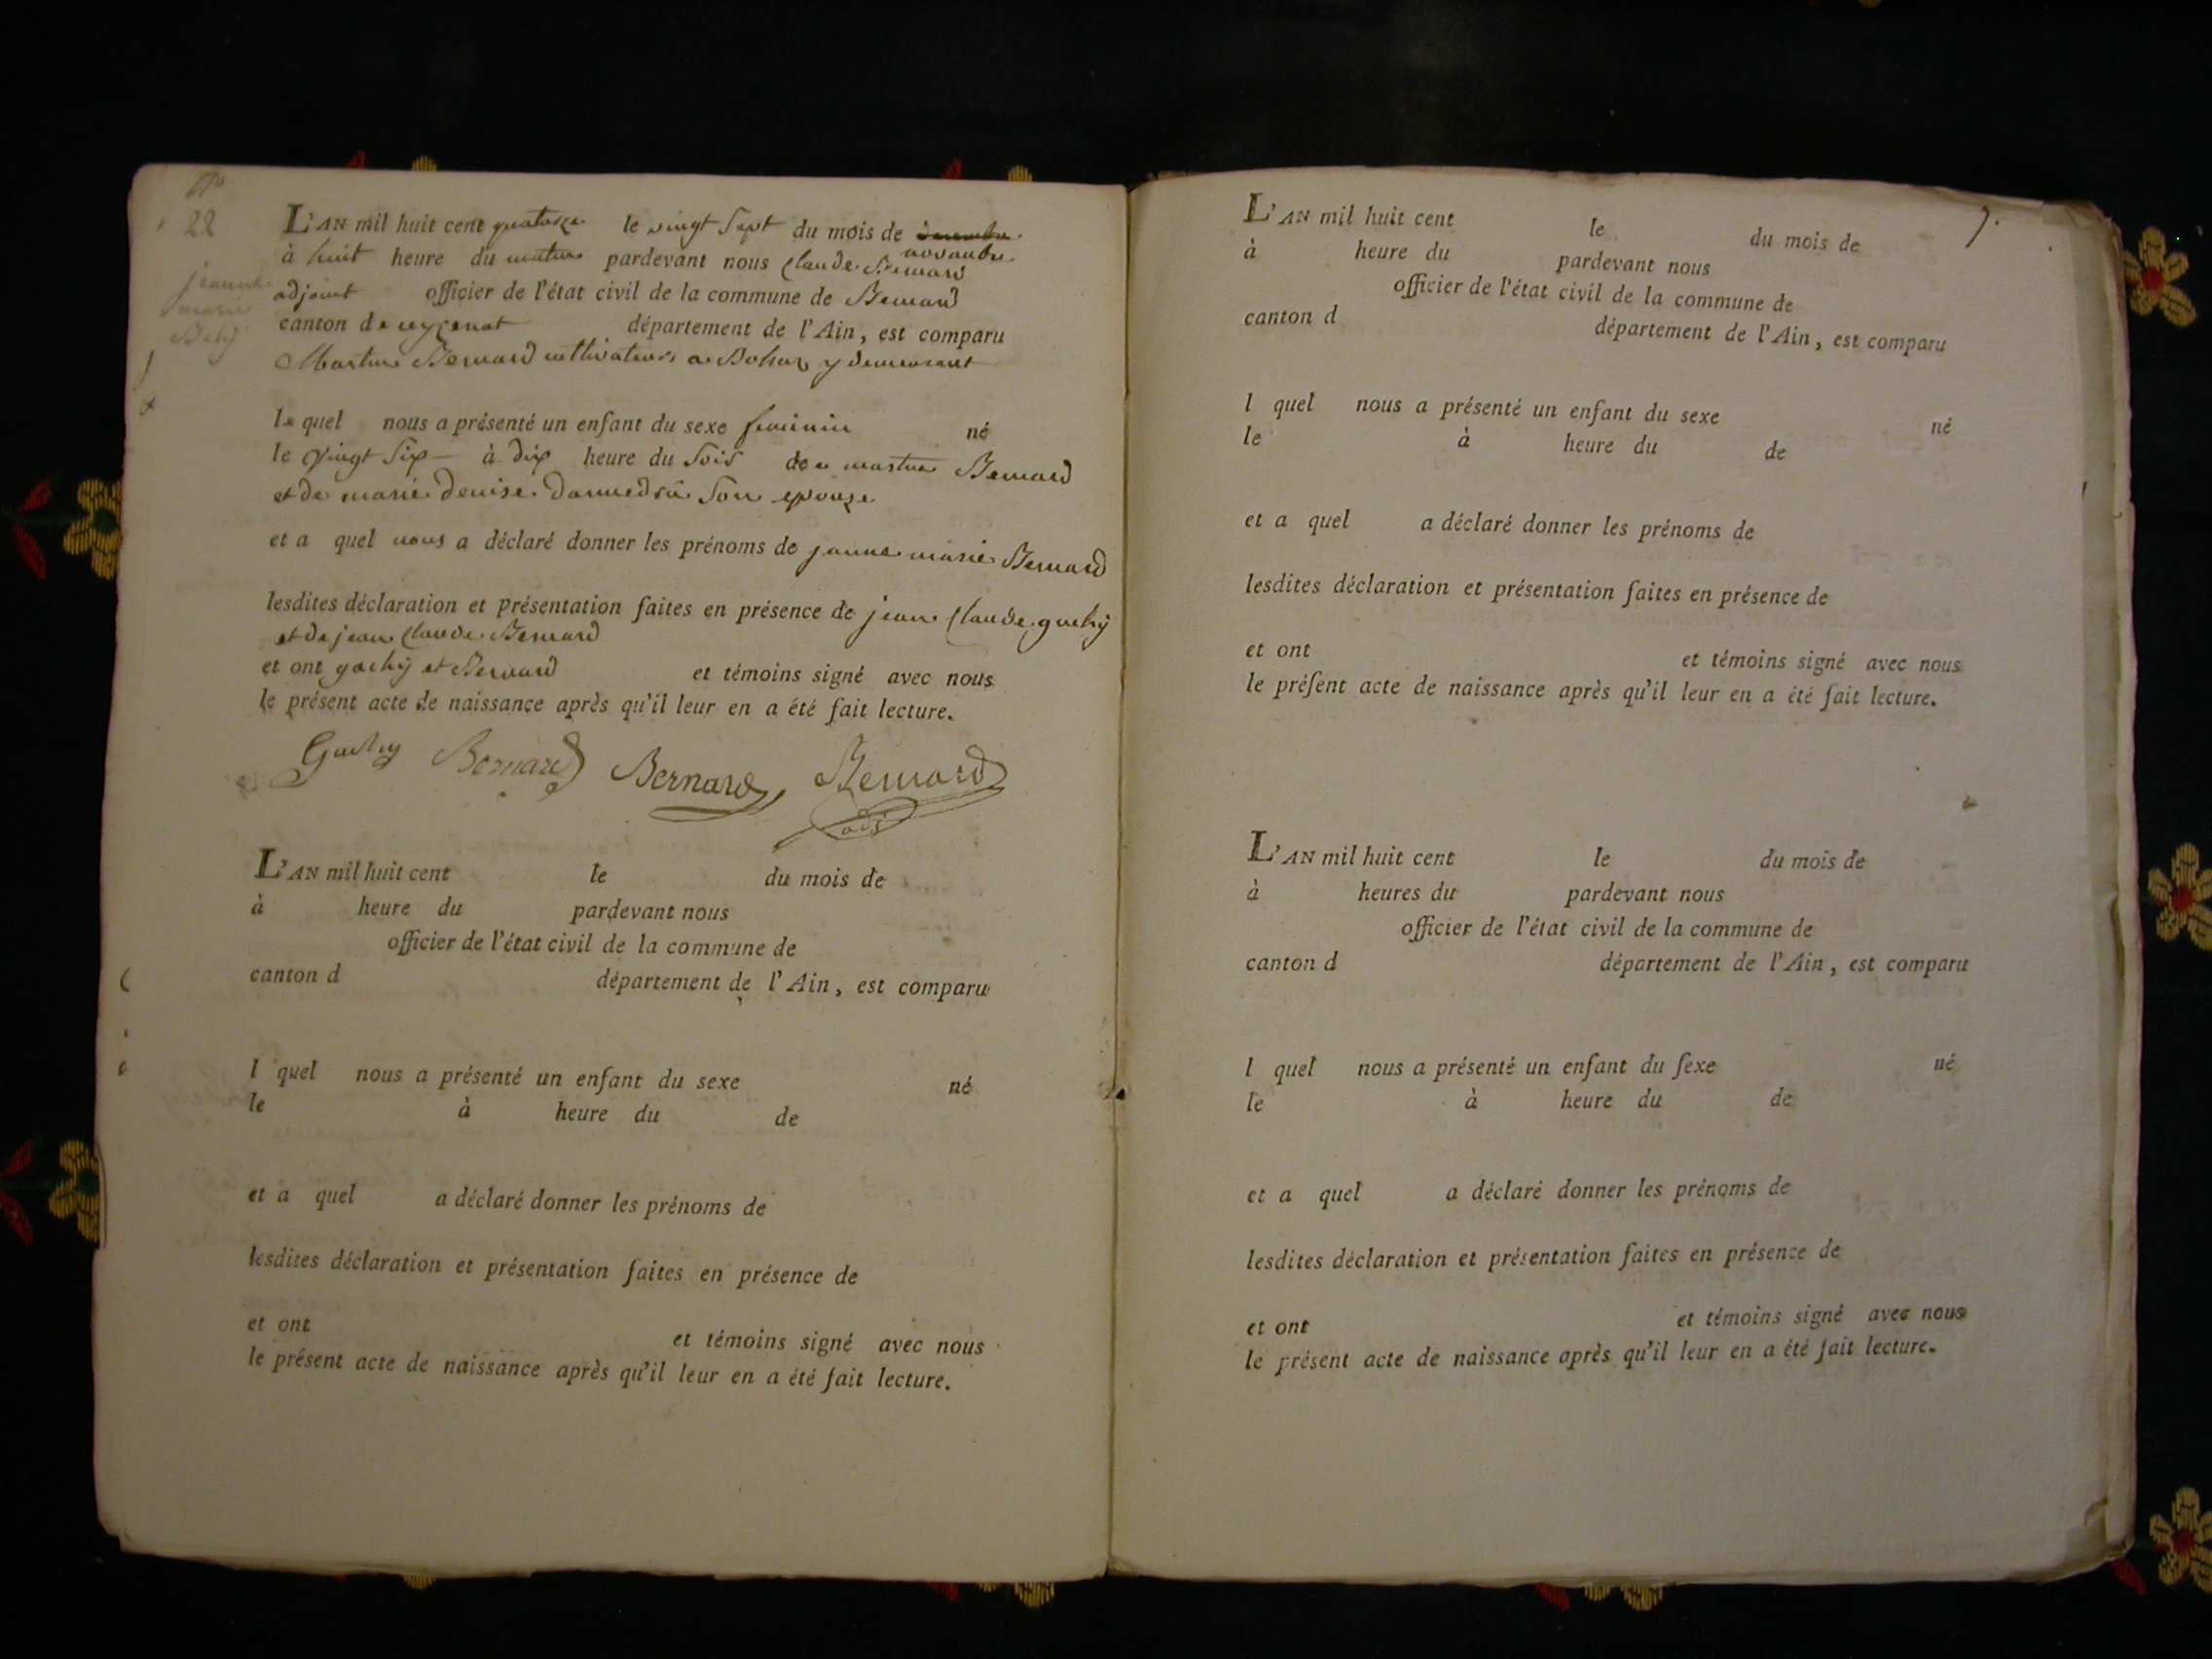 No
22
jeanne
marie
L'AN mil huit cent quatorze le vingt sept du mois de novembre
à huit heure du matin pardevant nous Claude Bernard
adjoint officier de l'état civil de la commune de
canton de ceyzeriat département de l'Ain, est comparu
Martin Bernard cultivateur a Bohas y demeurant
le quel nous a présenté un enfant du sexe feminin né
le vingt six à dix heure du soir de martin Bernard
et de marie denise son epouze
et a quel nous a déclaré donner les prénoms de jeanne marie Bernard
lesdites déclaration et présentation faites en présence de jean Claude
et de jean Claude Bernard
et ont gachy et Bernard et témoins signé avec nous
le présent acte de naissance après qu'il leur en a été fait lecture.
Bernard Bernard Bernard
adj
L'AN mil huit cent le du mois de
à heure du pardevant nous
officier de l'état civil de la commune de
canton d département de l'Ain, est comparu
l quel nous a présenté un enfant du sexe né
le à heure du de
et a quel a déclaré donner les prénoms de
lesdites déclaration et présentation faites en présence de
et ont et témoins signé avec nous
le présent acte de naissance après qu'il leur en a été fait lecture.
7.
L'AN mil huit cent le du mois de
à heure du pardevant nous
officier de l'état civil de la commune de
canton d département de l'Ain, est comparu
l quel nous a présenté un enfant du sexe né
le à heure du de
et a quel a déclaré donner les prénoms de
lesdites déclaration et présentation faites en présence de
et ont et témoins signé avec nous
le préſent acte de naissance après qu'il leur en a été fait lecture.
L'AN mil huit cent le du mois de
à heures du pardevant nous
officier de l'état civil de la commune de
canton d département de l'Ain, est comparu
l quel nous a présenté un enfant du ſexe né
le à heure du de
et a quel a déclaré donner les prénoms de
lesdites déclaration et présentation faites en présence de
et ont et témoins signé avec nous
le présent acte de naissance après qu'il leur en a été fait lecture.